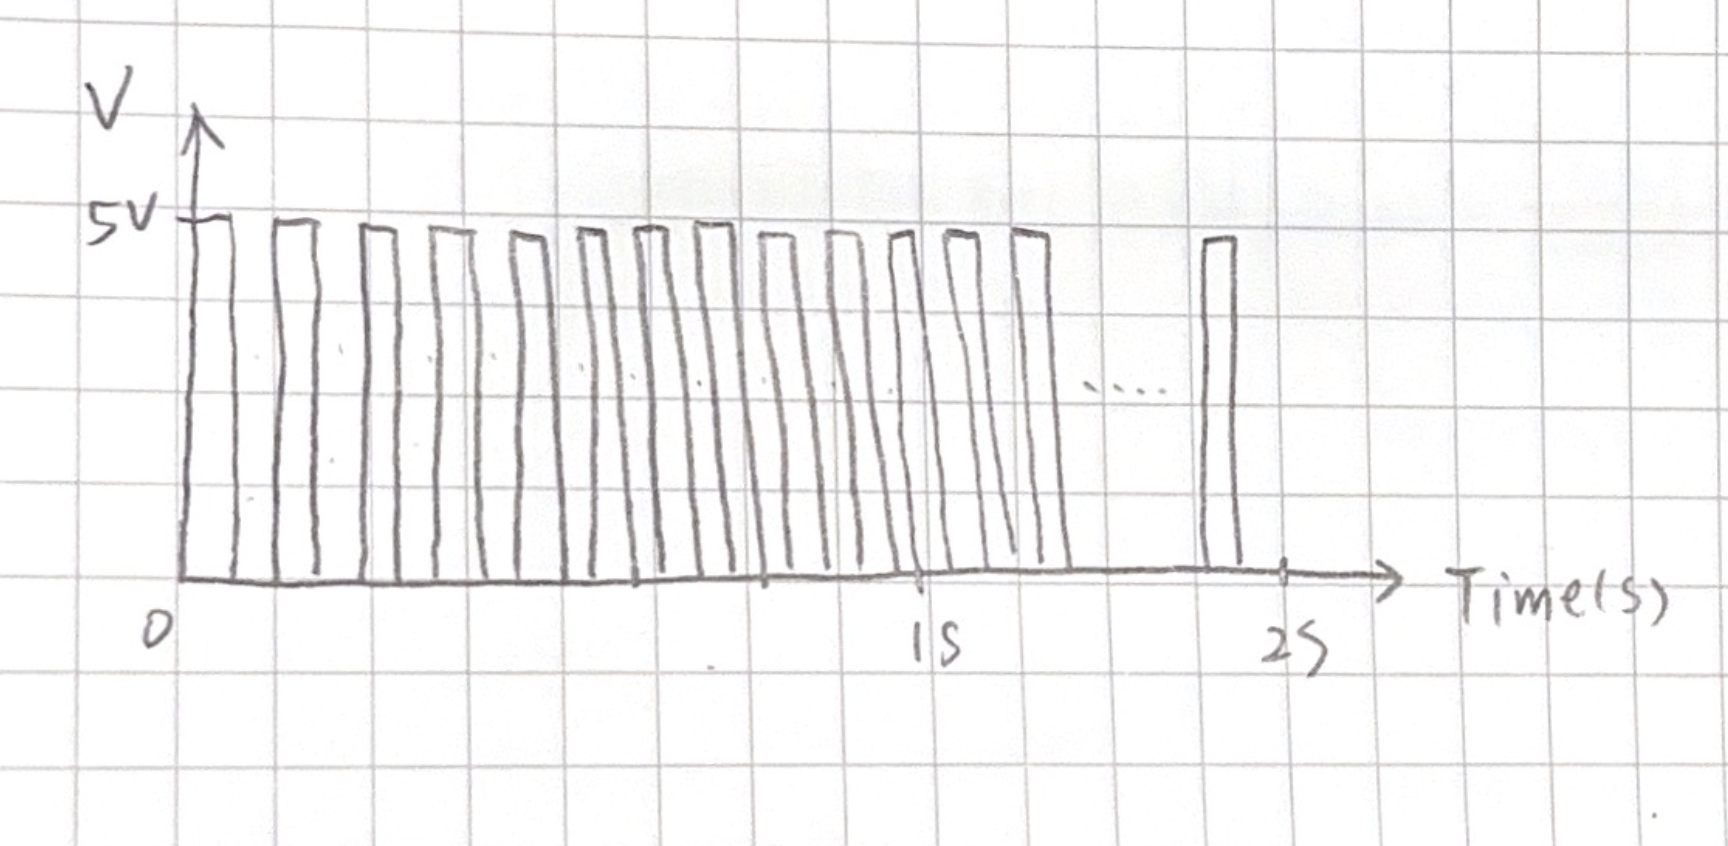 V
5V
0
1S
2S
Time(s)